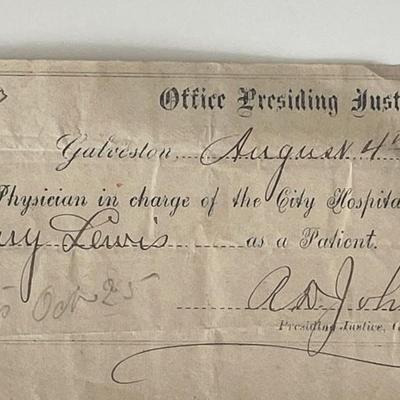 Office Presiding Just
Galveston, August 4th
Physician in charge of the City Hospita
Lewis as a Patient.
Oct 25
A.D. Joh
Presiding Justice, G